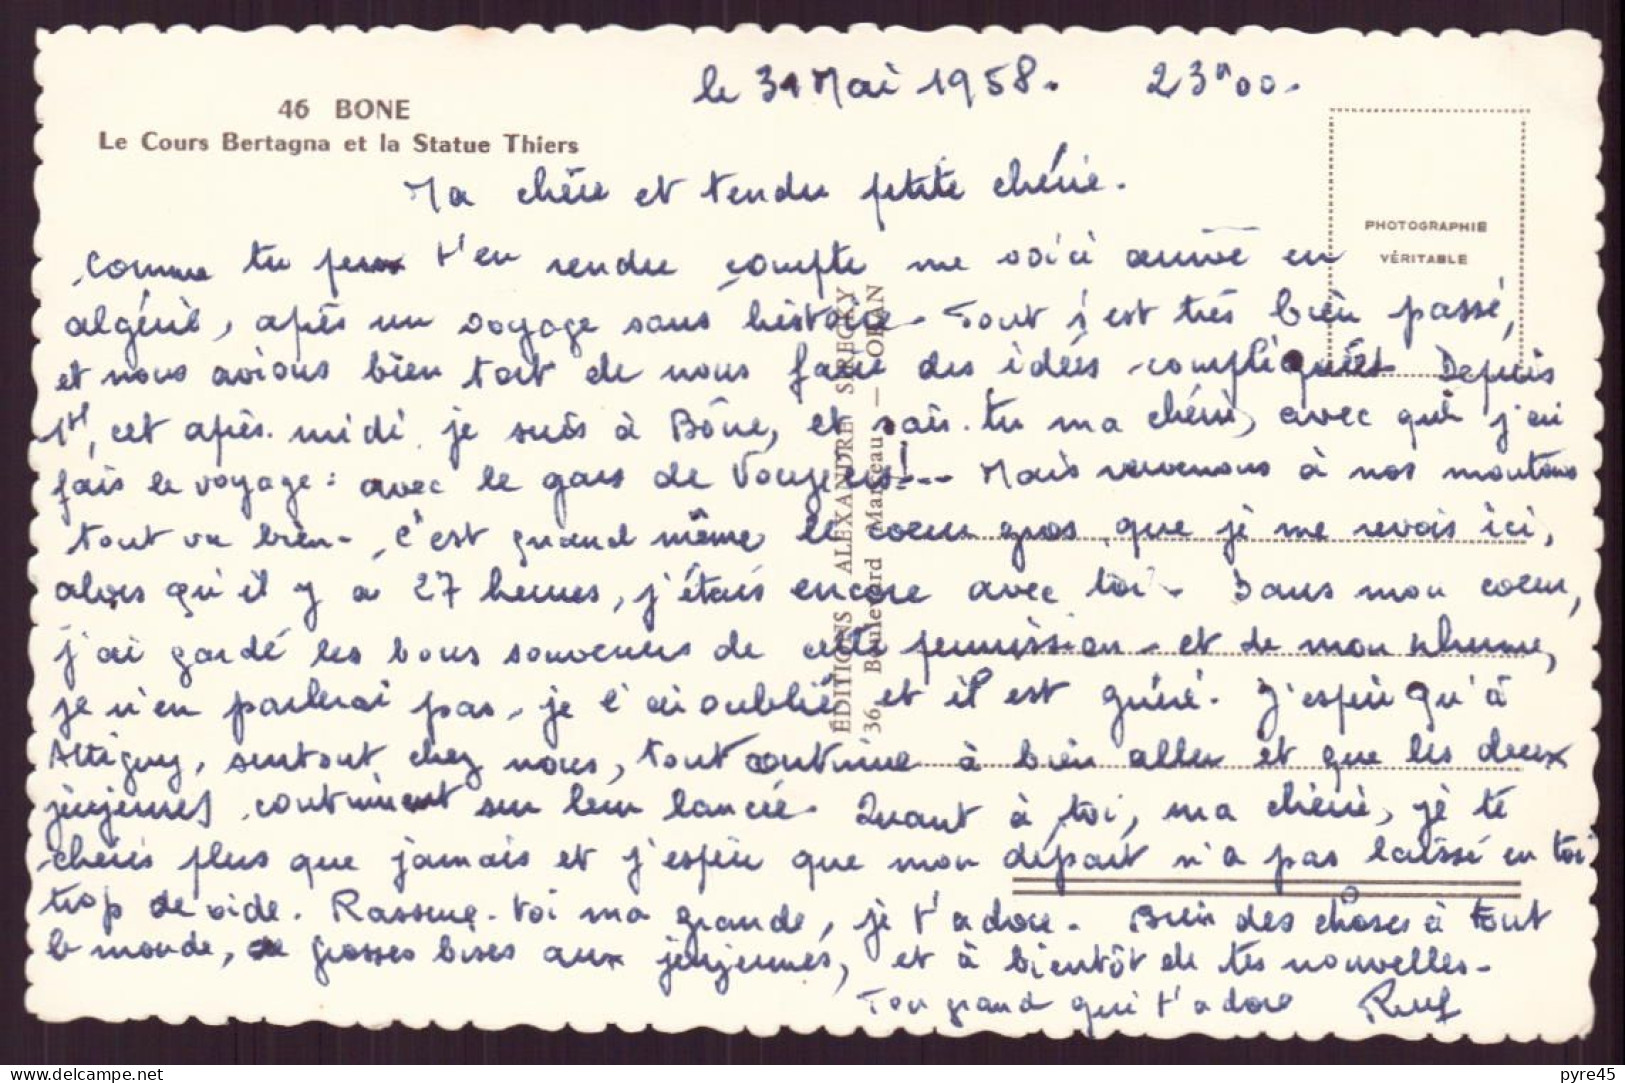 le 31 Mai 1958. 23h00.
46 BONE
Le Cours Bertagna et la Statue Thiers
Ma chère et tendre petite chérie.
PHOTOGRAPHIE
VÉRITABLE
comme tu peux t'en rendre compte me voici arrivé en
algérie, après un voyage sans histoire. Tout s'est très bien passé,
et nous avions bien tort de nous faire des idées compliquées. Depuis
1H, cet après-midi je suis à Bône, et sais-tu ma chérie, avec qui j'ai
fais le voyage : avec le gars de !... Mais revenons à nos moutons
tout va bien. C'est quand même le coeur gros que je me revois ici,
alors qu'il y a 27 heures, j'étais encore avec toi. Dans mon coeur,
j'ai gardé les bons souvenirs de cette permission. et de mon rhume,
je n'en parlerai pas, je l'ai oublié et il est guéri. J'espère qu'à
Attigny, surtout chez nous, tout continue à bien aller et que les deux
continuent sur leur lancée. Quant à toi, ma chérie, je te
chéris plus que jamais et j'espère que mon départ n'a pas laissé en toi
trop de vide. Rassure-toi ma grande, je t'adore. Bien des choses à tout
le monde, de grosses bises aux et à bientôt de tes nouvelles.
Ton grand qui t'adore
ÉDITIONS ALEXANDRE SIRECKY
36 Boulevard Marceau — ORAN
pyre45